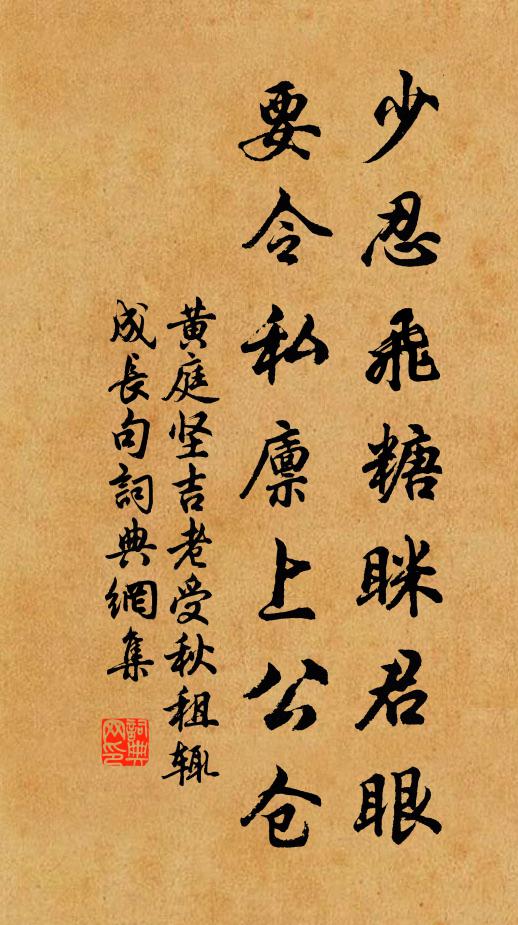 少忍飛糖眯君眼
要令私廪上公仓
黄庭坚吉老受秋租辄
成長句詞典網集
詞典
网印